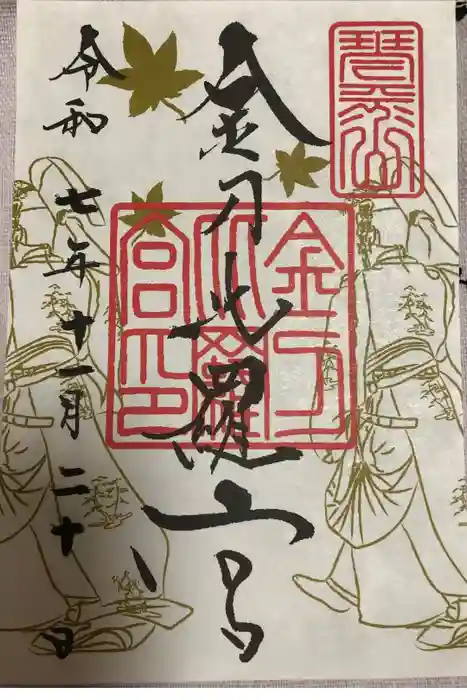 琴平山
金刀比羅宮
金刀
比羅
宮印
令和七年十一月二十日